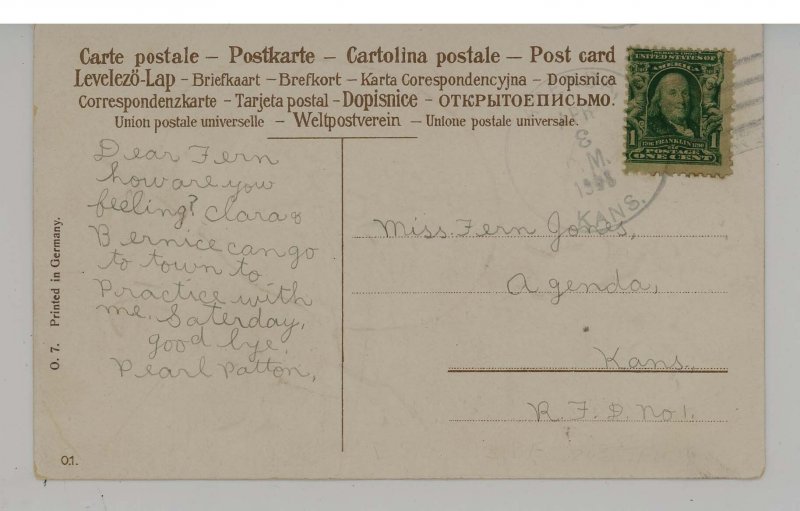 Carte postale – Postkarte – Cartolina postale – Post card
Levelező-Lap – Briefkaart – Brefkort – Karta Corespondencyjna – Dopisnica
Correspondenzkarte – Tarjeta postal – Dopisnice – ОТКРЫТОЕПИСЬМО.
Union postale universelle – Weltpostverein – Unione postale universale.
Dear Fern
how are you
feeling? Clara &
Bernice can go
to town to
Practice with
me, Saterday,
good bye,
Pearl Patton,
O. 7. Printed in Germany.
01.
UNITED STATES OF
AMERICA
1 FRANKLIN 1
POSTAGE
ONE CENT
3
M.
KANS.
Miss. Fern Jones,
Agenda,
Kans.,
R.F.D. No 1.